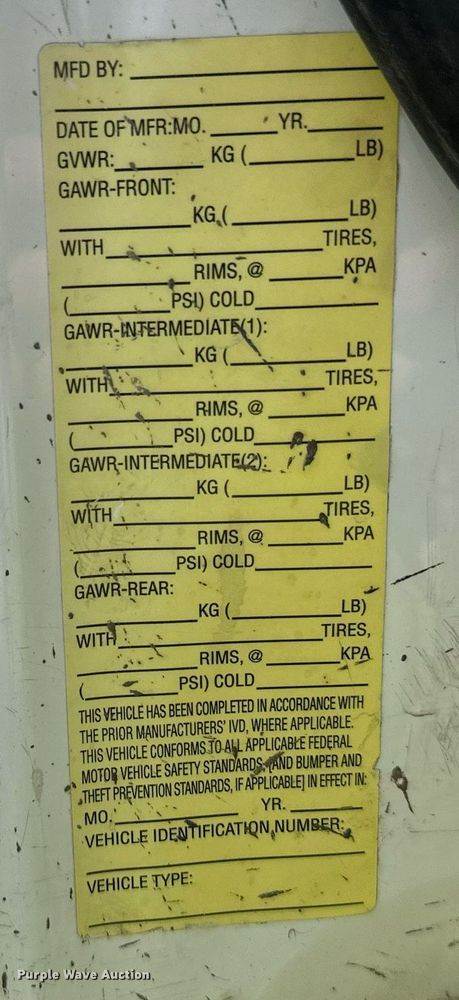 MFD BY: ____________
____________
DATE OF MFR:MO. ______YR.______
GVWR:________ KG (________LB)
GAWR-FRONT:
____________KG (________LB)
WITH____________TIRES,
____________RIMS, @ ______KPA
(________PSI) COLD________
GAWR-INTERMEDIATE(1):
____________KG (________LB)
WITH____________TIRES,
____________RIMS, @ ______KPA
(________PSI) COLD________
GAWR-INTERMEDIATE(2):
____________KG (________LB)
WITH____________TIRES,
____________RIMS, @ ______KPA
(________PSI) COLD________
GAWR-REAR:
____________KG (________LB)
WITH____________TIRES,
____________RIMS, @ ______KPA
(________PSI) COLD________
THIS VEHICLE HAS BEEN COMPLETED IN ACCORDANCE WITH
THE PRIOR MANUFACTURERS' IVD, WHERE APPLICABLE.
THIS VEHICLE CONFORMS TO ALL APPLICABLE FEDERAL
MOTOR VEHICLE SAFETY STANDARDS, [AND BUMPER AND
THEFT PREVENTION STANDARDS, IF APPLICABLE] IN EFFECT IN:
MO. ____________ YR. ________
VEHICLE IDENTIFICATION NUMBER:
____________
VEHICLE TYPE:
____________
Purple Wave Auction